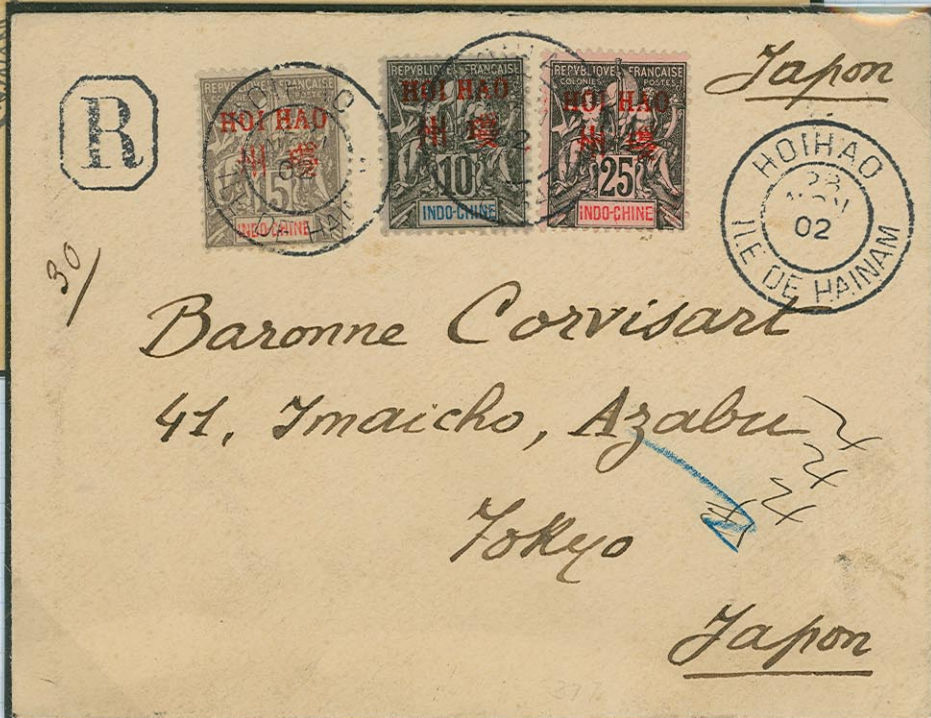 Japon
R
REPVBLIQVE FRANÇAISE
HOI HAO
州 瓊
15
INDO-CHINE
REPVBLIQVE FRANÇAISE
HOI HAO
州 瓊
10
INDO-CHINE
REPVBLIQVE FRANÇAISE
COLONIES POSTES
HOI HAO
州 瓊
25
INDO-CHINE
HOIHAO
28
02
ILE DE HAINAM
30
Baronne Corvisart
41, Imaicho, Azabu
Tokyo
Japon